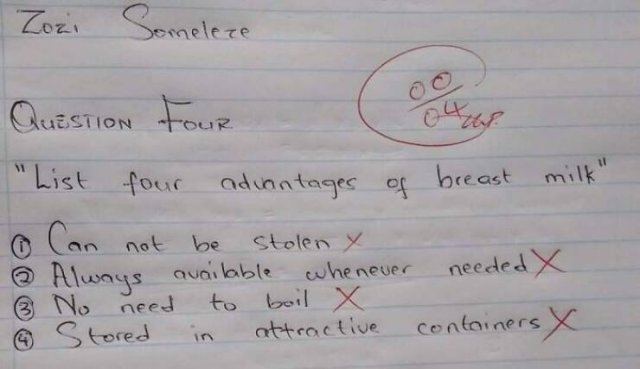 Zozi Someleze
00
04
QUESTION FOUR
"List four advantages of breast milk"
① Can not be stolen X
② Always available whenever needed X
③ No need to boil X
④ Stored in attractive containers X